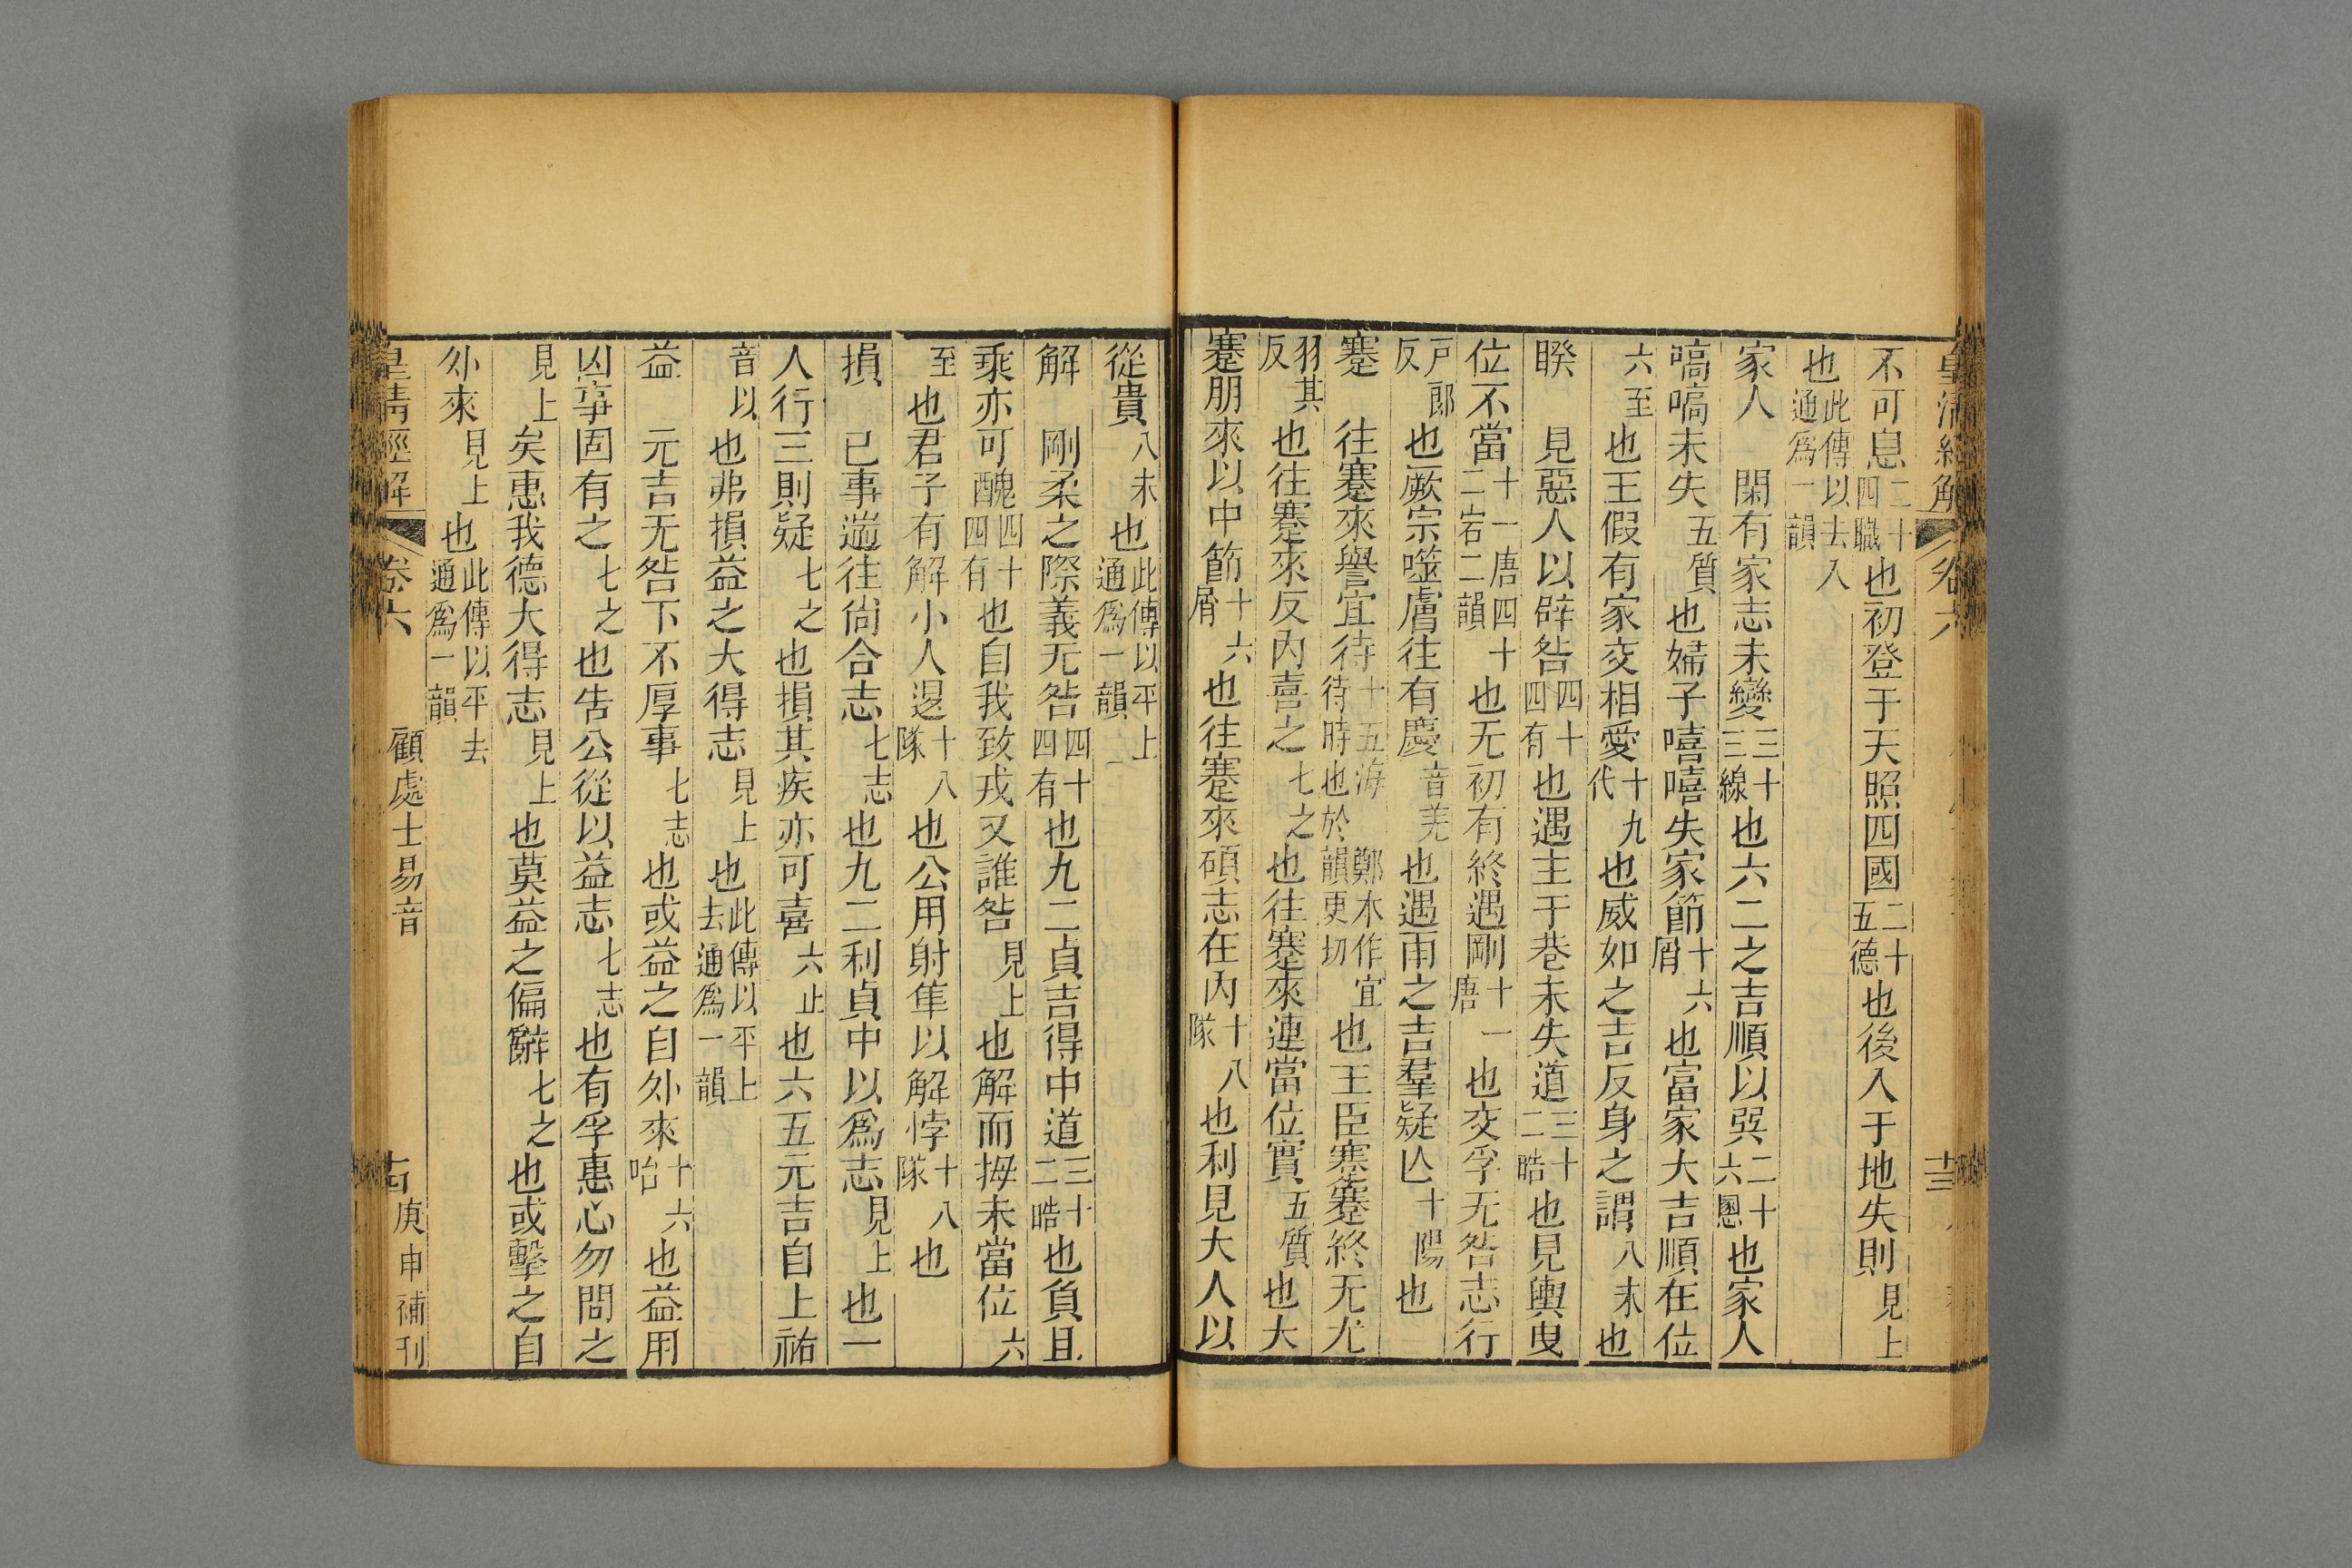 皇清經解 卷六 十三
不可息二十四職也初登于天照四國二十五德也後入于地失則見上
也此傳以去入通爲一韻
家人 閑有家志未變三十三線也六二之吉順以巽二十六慁也家人
嗃嗃未失五質也婦子嘻嘻失家節十六屑也富家大吉順在位
六至也王假有家交相愛十九代也威如之吉反身之謂八未也
睽 見惡人以辟咎四十四有也遇主于巷未失道三十二晧也見輿曳
位不當十一唐四十二宕二韻也无初有終遇剛十一唐也交孚无咎志行
戸郎反也厥宗噬膚往有慶音羌也遇雨之吉羣疑亾十陽也
蹇 往蹇來譽宜待十五海鄭木作宜待時也於韻更切也王臣蹇蹇終无尤
羽其反也往蹇來反內喜之七之也往蹇來連當位實五質也大
蹇朋來以中節十六屑也往蹇來碩志在內十八隊也利見大人以
從貴八未也此傳以平上通爲一韻
解 剛柔之際義无咎四十四有也九二貞吉得中道三十二晧也負且
乘亦可醜四十四有也自我致戎又誰咎見上也解而拇未當位六
至也君子有解小人退十八隊也公用射隼以解悖十八隊也
損 已事遄往尙合志七志也九二利貞中以爲志見上也一
人行三則疑七之也損其疾亦可喜六止也六五元吉自上祐
音以也弗損益之大得志見上也此傳以平上去通爲一韻
益 元吉无咎下不厚事七志也或益之自外來十六咍也益用
凶事固有之七之也吿公從以益志七志也有孚惠心勿問之
見上矣惠我德大得志見上也莫益之偏辭七之也或擊之自
外來見上也此傳以平去通爲一韻
皇清經解 卷六 顧處士易音 十四 庚申補刊